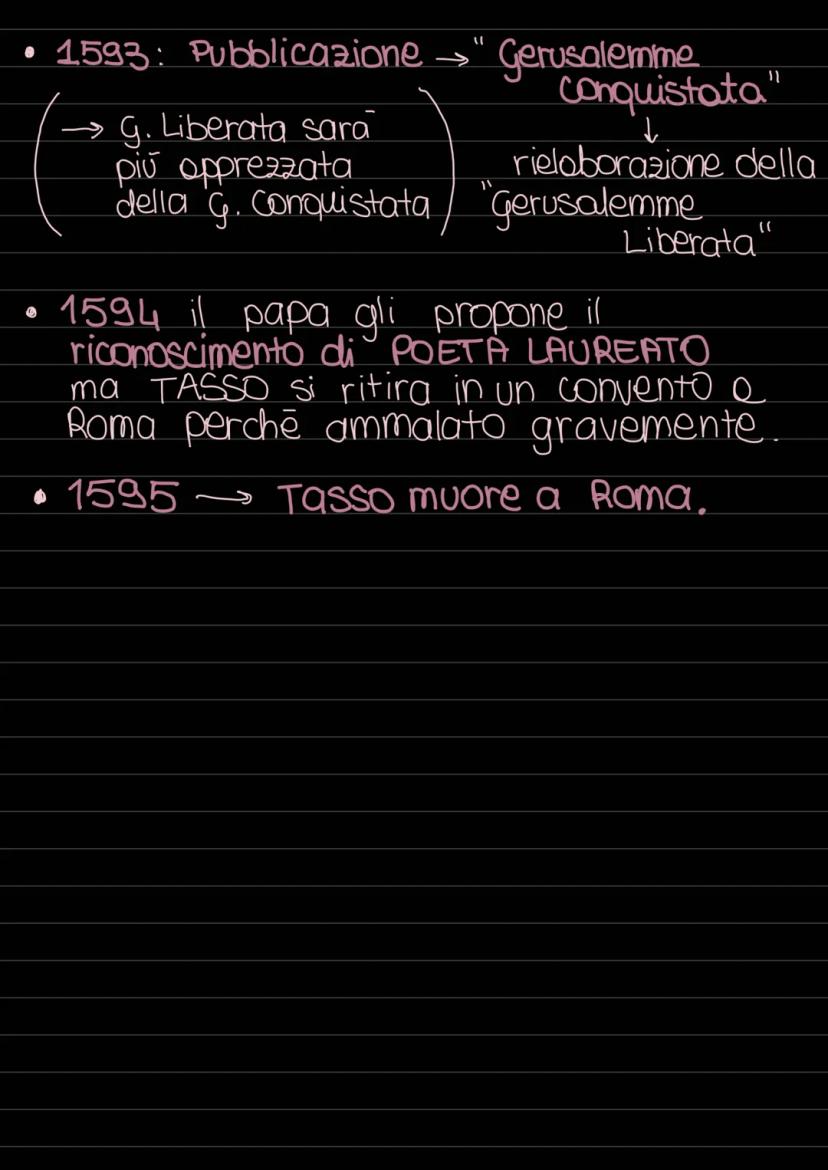 • 1593: Pubblicazione → "Gerusalemme
conquistata"
↓
rielaborazione della
"Gerusalemme
Liberata"
(→ G. Liberata sarā
piū apprezzata
della G. Conquistata)
• 1594 il papa gli propone il
riconoscimento di POETA LAUREATO
ma TASSO si ritira in un convento a
Roma perchē ammalato gravemente.
• 1595 → Tasso muore a Roma.